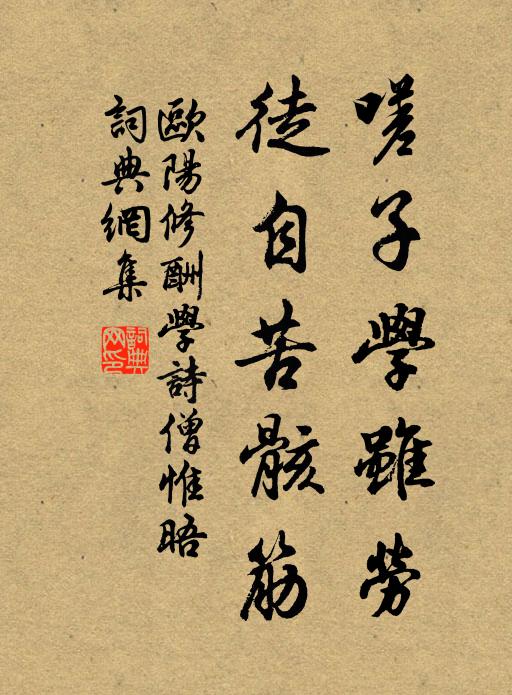 嗟子學雖勞
徒自苦骸筋
歐陽修酬學詩僧惟晤
詞典網集
詞典網印